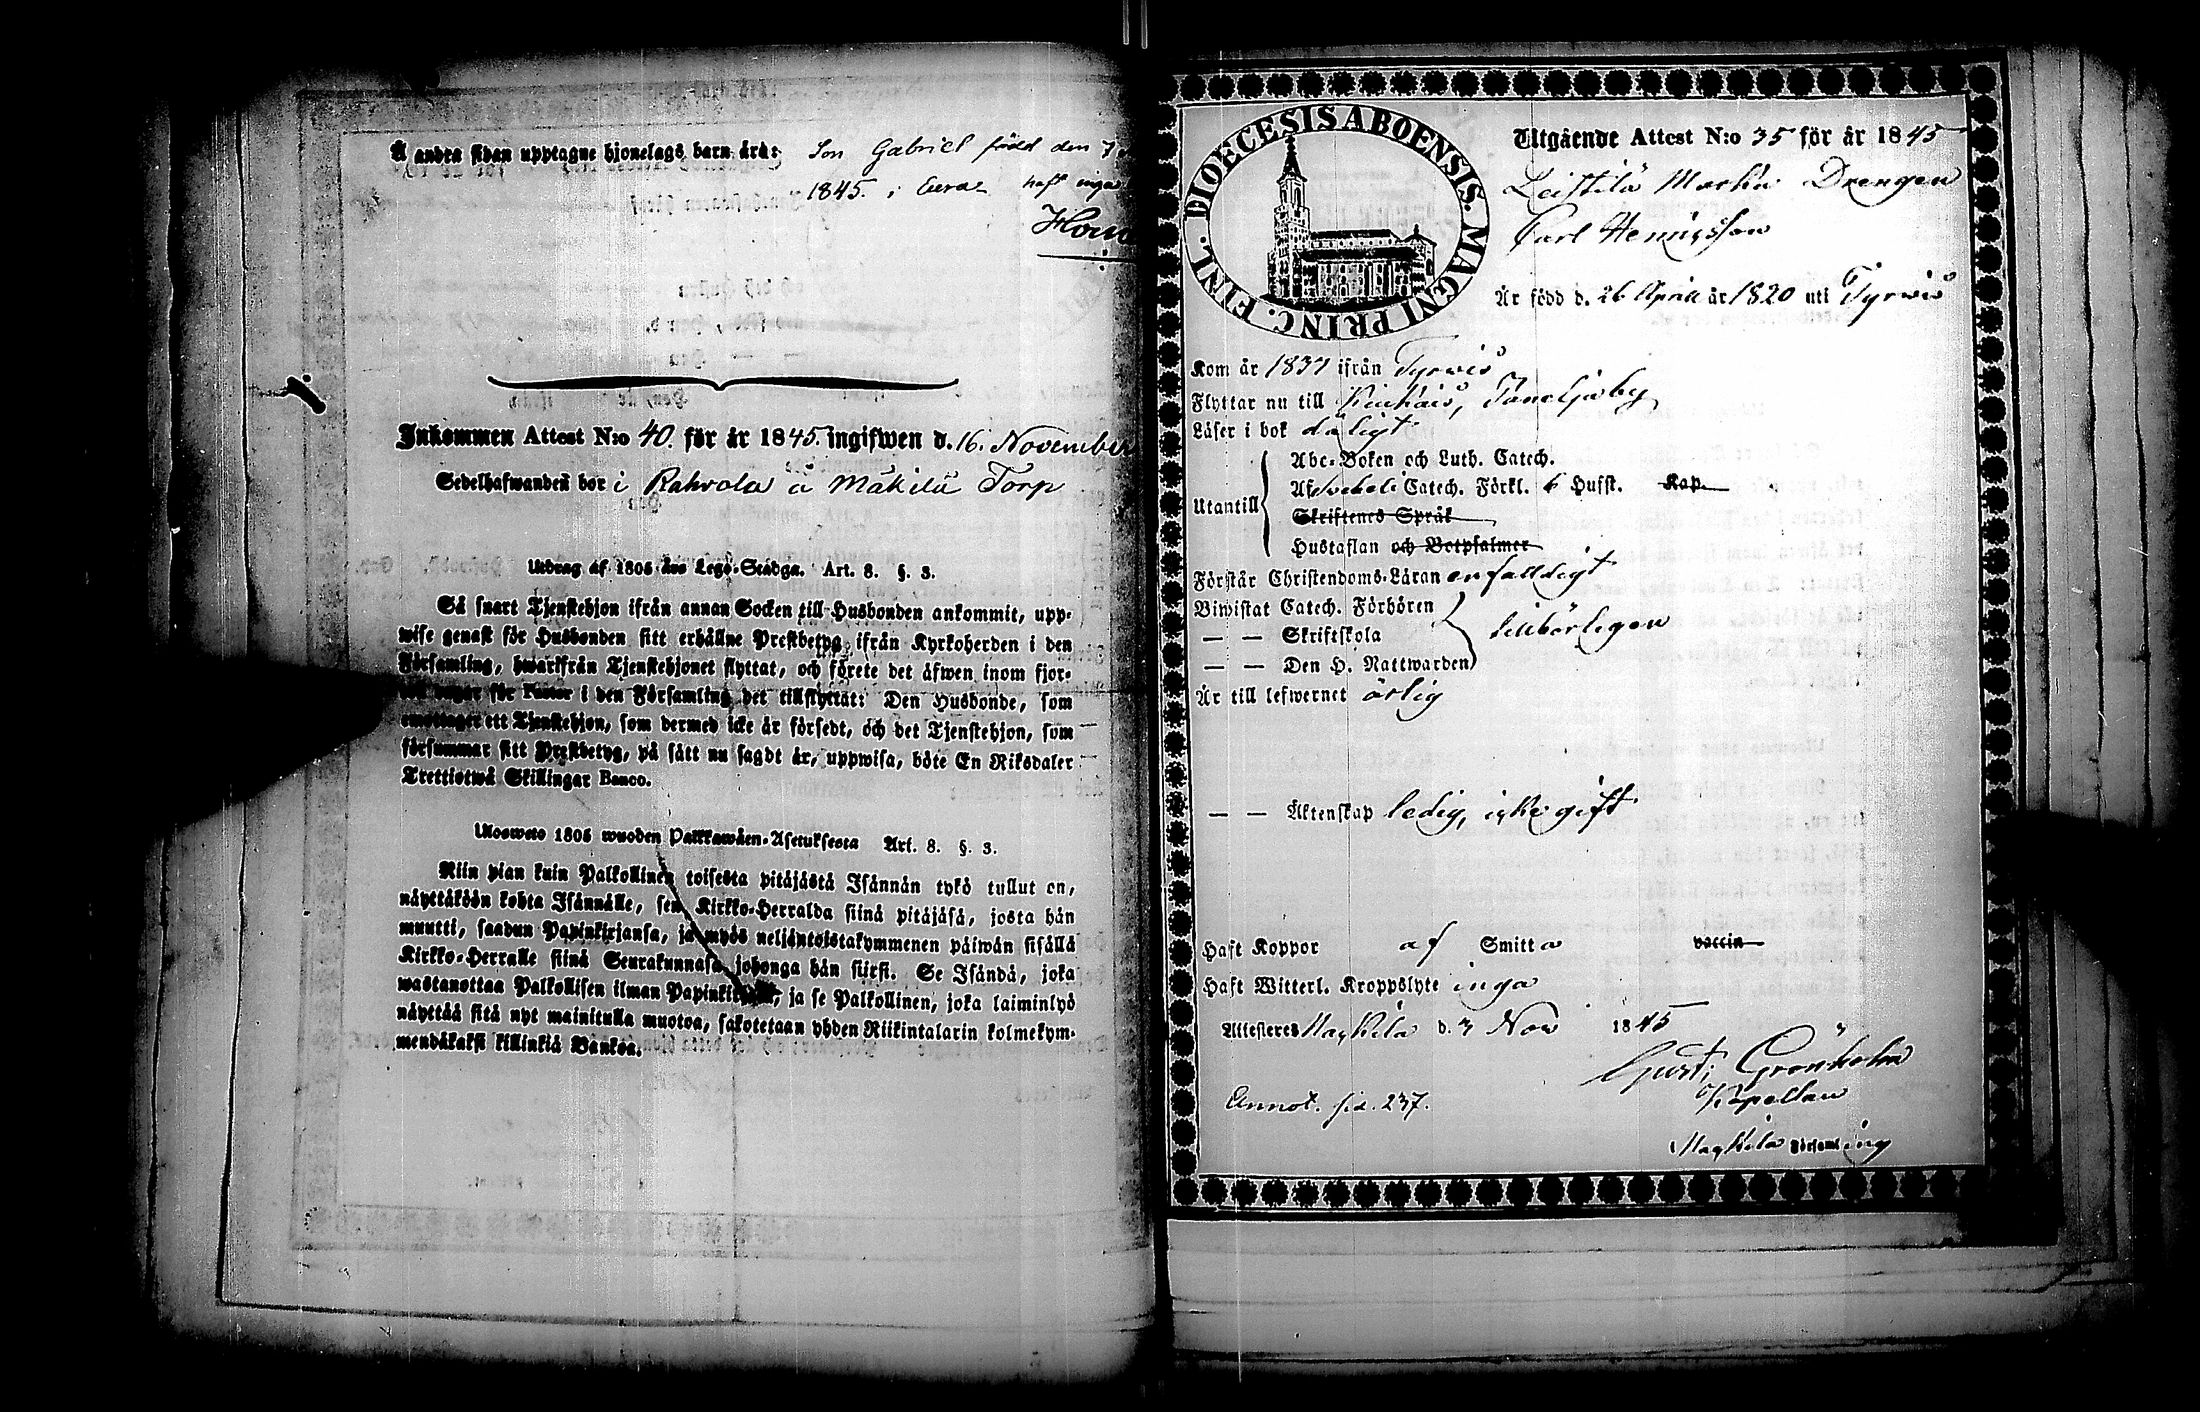 Å andra sidan upptagne hjonelags barn äro: Son Gabriel född den 7
1845. i Eura haft inga
Inkommen Attest N:o 40. för år 1845. ingifwen d. 16. November
Sedelhafwanden bor i Rahvola å Mäkilä Torp
Utdrag af 1805 års Lego-Stadga. Art. 8. §. 3.
Så snart Tjenstehjon ifrån annan Socken till Husbonden ankommit, upp-
wise genast för Husbonden sitt erhållne Prestbetyg, ifrån Kyrkoherden i den
Församling, hwarifrån Tjenstehjonet flyttat, och förete det äfwen inom fjor-
för Pastor i den Församling det tillflyttat: Den Husbonde, som
emottager ett Tjenstehjon, som dermed icke är försedt, och det Tjenstehjon, som
försummar sitt Prestbetyg, på sätt nu sagdt är, uppwisa, böte En Riksdaler
Trettiotwå Skillingar Banco.
Ulosweto 1805 wuoden Palkkawäen-Asetuksesta Art. 8. §. 3.
Niin pian kuin Palkollinen toisesta pitäjästä Isännän tykö tullut on,
näyttäköön kohta Isännälle, sen Kirkko-Herralda siinä pitäjäsä, josta hän
muutti, saadun Papinkirjansa, ja myös neljäntoistakymmenen päiwän sisällä
Kirkko-Herralle siinä Seurakunnasa, johonga hän siirsi. Se Isändä, joka
wastanottaa Palkollisen ilman Papinkirjata, ja se Palkollinen, joka laiminlyö
näyttää sitä nyt mainitulla muotoa, sakotetaan yhden Riikintalarin kolmekym-
mendäkaksi killinkiä Bankoa.
DIOECESIS ABOENSIS. MAGNI PRINC. FINL.
Utgående Attest N:o 35 för år 1845
Leistilä Marku Drengen
Carl Henricsson
Är född d. 26 April år 1820 uti Tyrwis
Kom år 1837 ifrån Tyrwis
Flyttar nu till Kiukais, Paneljaby
Läser i bok dåligt
Utantill
Abc-Boken och Luth. Catech.
Af Svebeli Catech. Förkl. 6 Hufst. Kap.
Skriftenes Språk
Hustaflan och Botpsalmer
Förstår Christendoms-Läran enfalldigt
Biwistat Catech. Förhören
— — Skriftskola tillbörligen
— — Den H. Nattwarden
Är till lefwernet ärlig
— — Äktenskap ledig, icke gift
Haft Koppor af Smitta vaccin
Haft Witterl. Kroppslyte inga
Attesteres Naykila d. 3 Nov 1845
Gust: Grönholm
Kapellan
Annot. sid. 237.
Naykila Församling